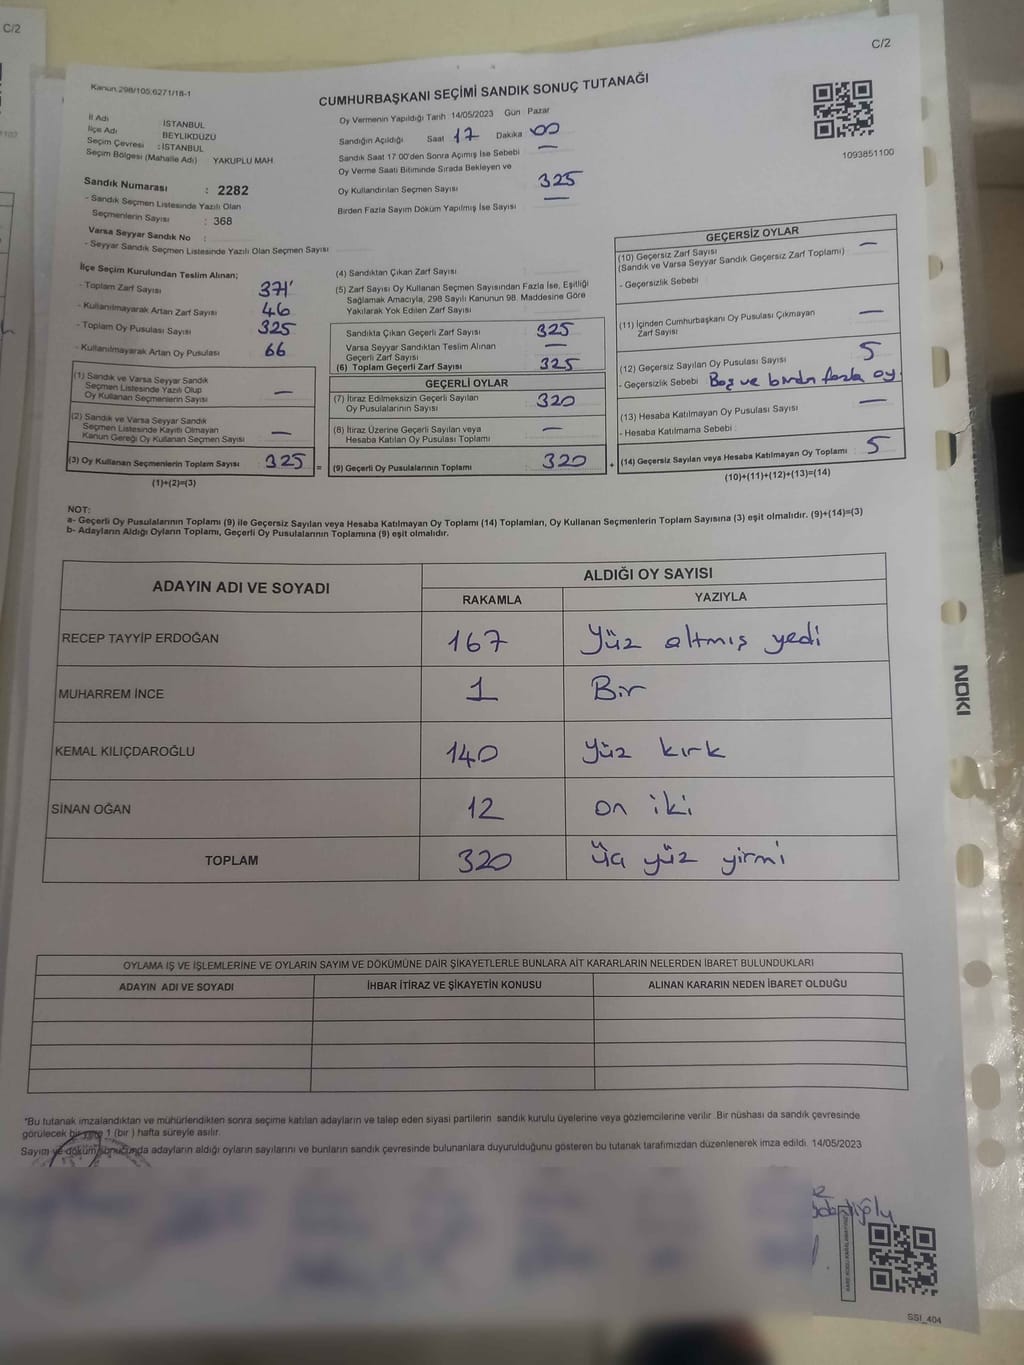 C/2
C/2
Kanun 298/105,6271/18-1
CUMHURBAŞKANI SEÇİMİ SANDIK SONUÇ TUTANAĞI
İl Adı : İSTANBUL
İlçe Adı BEYLİKDÜZÜ
Seçim Çevresi : İSTANBUL
Seçim Bölgesi (Mahalle Adı) YAKUPLU MAH.
Oy Vermenin Yapıldığı Tarih 14/05/2023 Gün Pazar
Sandığın Açıldığı Saat 17 Dakika 00
Sandık Saat 17:00'den Sonra Açımış İse Sebebi —
Oy Verme Saati Bitiminde Sırada Bekleyen ve
Oy Kullandırılan Seçmen Sayısı 325
Birden Fazla Sayım Döküm Yapılmış İse Sayısı —
1093851100
Sandık Numarası : 2282
- Sandık Seçmen Listesinde Yazılı Olan
Seçmenlerin Sayısı : 368
Varsa Seyyar Sandık No :
- Seyyar Sandık Seçmen Listesinde Yazılı Olan Seçmen Sayısı
İlçe Seçim Kurulundan Teslim Alınan;
- Toplam Zarf Sayısı 371
- Kullanılmayarak Artan Zarf Sayısı 46
- Toplam Oy Pusulası Sayısı 325
- Kullanılmayarak Artan Oy Pusulası 66
(1) Sandık ve Varsa Seyyar Sandık
Seçmen Listesinde Yazılı Olup
Oy Kullanan Seçmenlerin Sayısı —
(2) Sandık ve Varsa Seyyar Sandık
Seçmen Listesinde Kayıtlı Olmayan
Kanun Gereği Oy Kullanan Seçmen Sayısı —
(3) Oy Kullanan Seçmenlerin Toplam Sayısı 325 =
(1)+(2)=(3)
(4) Sandıktan Çıkan Zarf Sayısı
(5) Zarf Sayısı Oy Kullanan Seçmen Sayısından Fazla İse, Eşitliği
Sağlamak Amacıyla, 298 Sayılı Kanunun 98. Maddesine Göre
Yakılarak Yok Edilen Zarf Sayısı
Sandıkta Çıkan Geçerli Zarf Sayısı 325
Varsa Seyyar Sandıktan Teslim Alınan
Geçerli Zarf Sayısı —
(6) Toplam Geçerli Zarf Sayısı 325
GEÇERLİ OYLAR
(7) İtiraz Edilmeksizin Geçerli Sayılan
Oy Pusulalarının Sayısı 320
(8) İtiraz Üzerine Geçerli Sayılan veya
Hesaba Katılan Oy Pusulası Toplamı —
(9) Geçerli Oy Pusulalarının Toplamı 320 +
GEÇERSİZ OYLAR
(10) Geçersiz Zarf Sayısı —
(Sandık ve Varsa Seyyar Sandık Geçersiz Zarf Toplamı)
- Geçersizlik Sebebi
(11) İçinden Cumhurbaşkanı Oy Pusulası Çıkmayan
Zarf Sayısı —
(12) Geçersiz Sayılan Oy Pusulası Sayısı 5
- Geçersizlik Sebebi Boş ve birden fazla oy
(13) Hesaba Katılmayan Oy Pusulası Sayısı —
- Hesaba Katılmama Sebebi :
(14) Geçersiz Sayılan veya Hesaba Katılmayan Oy Toplamı 5
(10)+(11)+(12)+(13)=(14)
NOT:
a- Geçerli Oy Pusulalarının Toplamı (9) ile Geçersiz Sayılan veya Hesaba Katılmayan Oy Toplamı (14) Toplamları, Oy Kullanan Seçmenlerin Toplam Sayısına (3) eşit olmalıdır. (9)+(14)=(3)
b- Adayların Aldığı Oyların Toplamı, Geçerli Oy Pusulalarının Toplamına (9) eşit olmalıdır.
ADAYIN ADI VE SOYADI ALDIĞI OY SAYISI
RAKAMLA YAZIYLA
RECEP TAYYİP ERDOĞAN 167 Yüz altmış yedi
MUHARREM İNCE 1 Bir
KEMAL KILIÇDAROĞLU 140 Yüz kırk
SİNAN OĞAN 12 on iki
TOPLAM 320 üç yüz yirmi
OYLAMA İŞ VE İŞLEMLERİNE VE OYLARIN SAYIM VE DÖKÜMÜNE DAİR ŞİKAYETLERLE BUNLARA AİT KARARLARIN NELERDEN İBARET BULUNDUKLARI
ADAYIN ADI VE SOYADI İHBAR İTİRAZ VE ŞİKAYETİN KONUSU ALINAN KARARIN NEDEN İBARET OLDUĞU
*Bu tutanak imzalandıktan ve mühürlendikten sonra seçime katılan adayların ve talep eden siyasi partilerin sandık kurulu üyelerine veya gözlemcilerine verilir. Bir nüshası da sandık çevresinde
görülecek bir yere 1 (bir ) hafta süreyle asılır.
Sayım ve döküm sonucunda adayların aldığı oyların sayılarını ve bunların sandık çevresinde bulunanlara duyurulduğunu gösteren bu tutanak tarafımızdan düzenlenerek imza edildi. 14/05/2023
SSI_404
NOKI